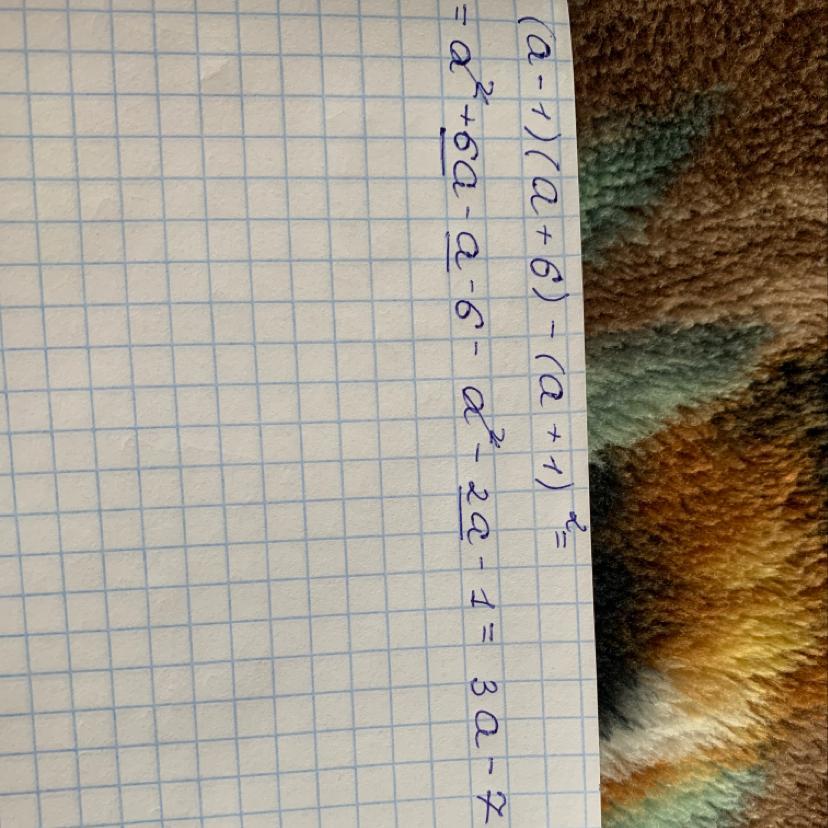 (a-1)(a+6)-(a+1)²=
=a²+6a-a-6-a²-2a-1=3a-7